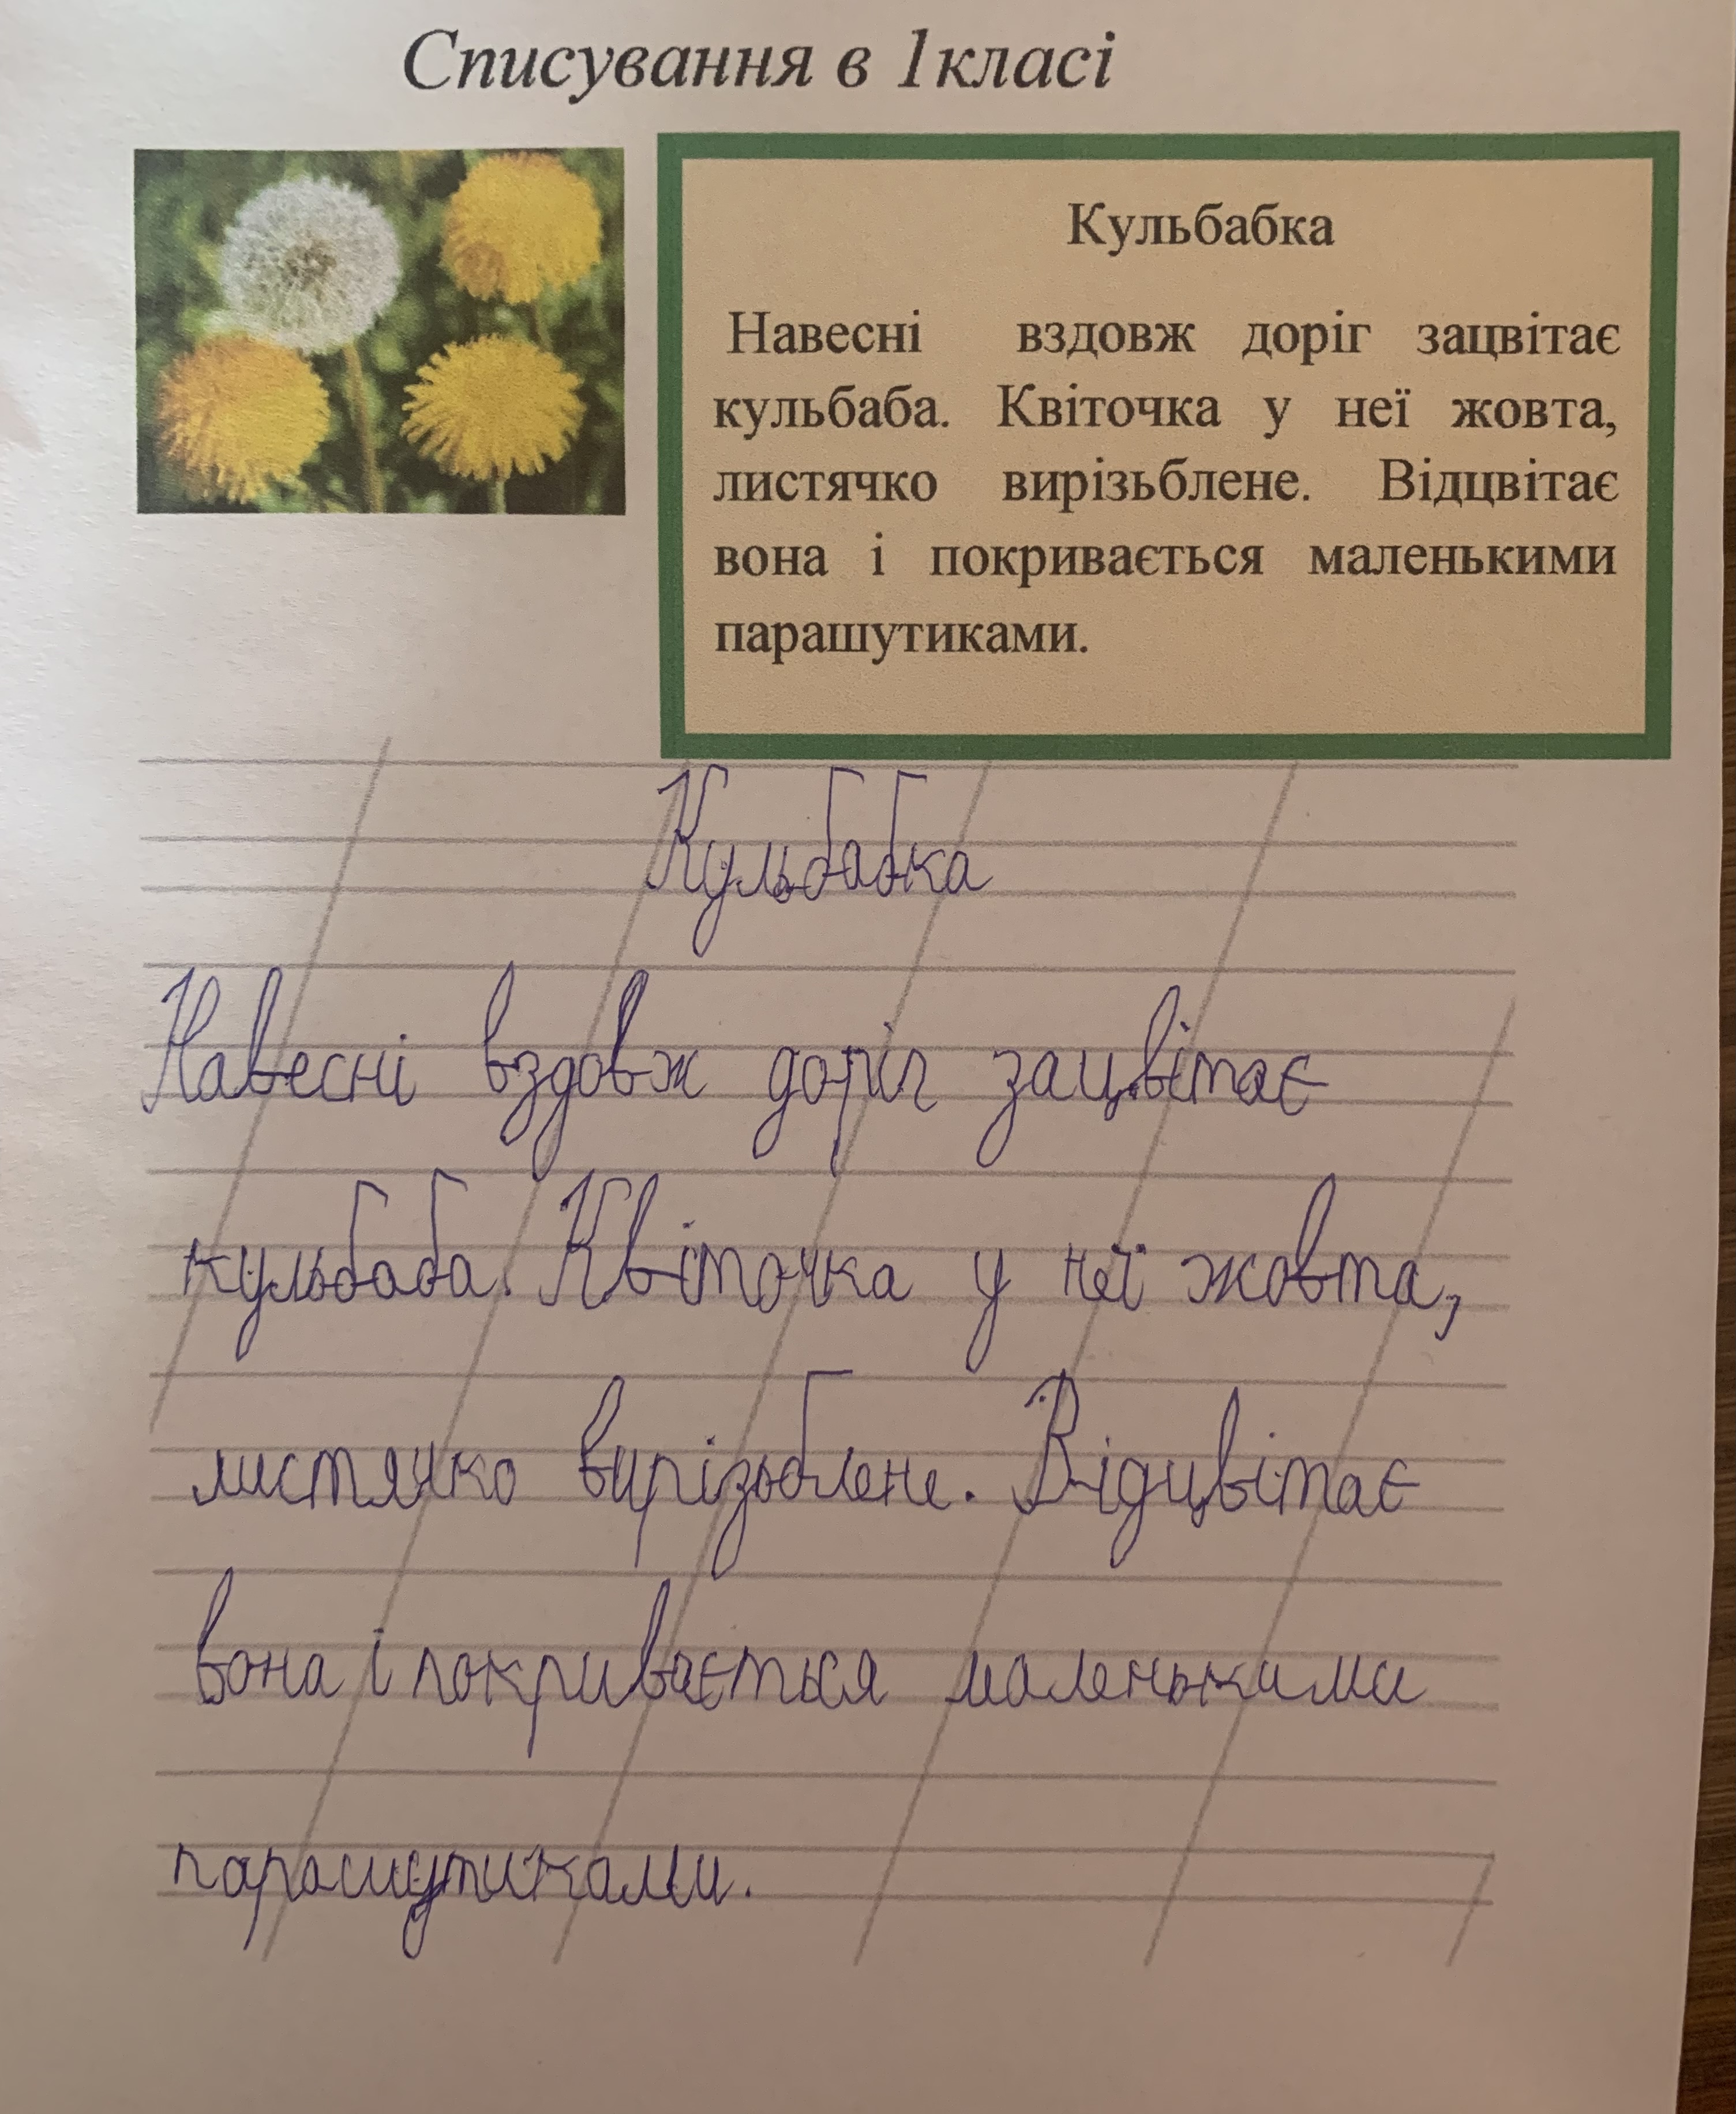 Списування в 1класі
Кульбабка
Навесні вздовж доріг зацвітає
кульбаба. Квіточка у неї жовта,
листячко вирізьблене. Відцвітає
вона і покривається маленькими
парашутиками.
Кульбабка
Навесні вздовж доріг зацвітає
кульбаба. Квіточка у неї жовта,
листячко вирізьблене. Відцвітає
вона і покривається маленькими
парашутиками.